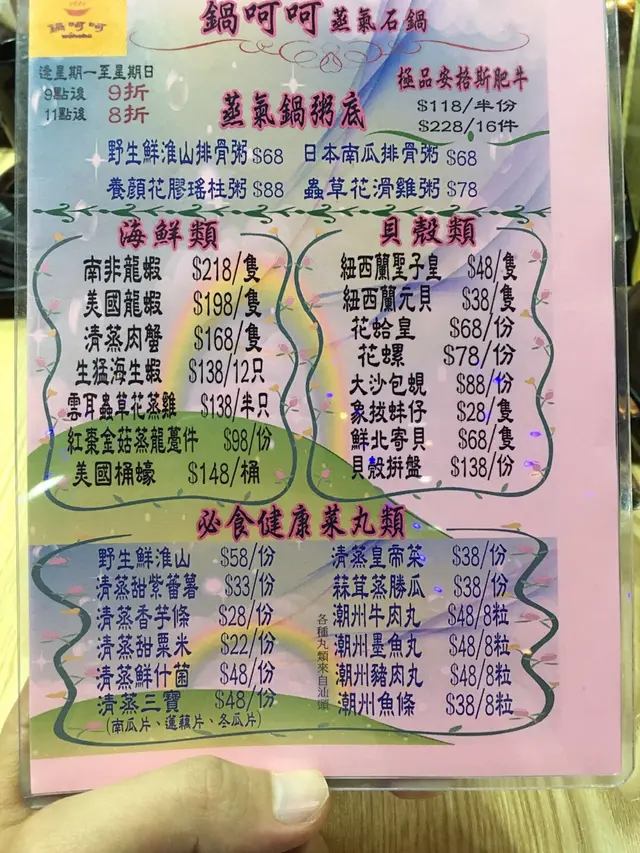 鍋呵呵
wohoho
鍋呵呵 蒸氣石鍋
逢星期一至星期日
9點後 9折
11點後 8折
極品安格斯肥牛
$118/半份
$228/16件
蒸氣鍋粥底
野生鮮淮山排骨粥 $68 日本南瓜排骨粥 $68
養顏花膠瑤柱粥 $88 蟲草花滑雞粥 $78
海鮮類
南非龍蝦 $218/隻
美國龍蝦 $198/隻
清蒸肉蟹 $168/隻
生猛海生蝦 $138/12只
雲耳蟲草花蒸雞 $138/半只
紅棗金菇蒸龍躉件 $98/份
美國桶蠔 $148/桶
貝殼類
紐西蘭聖子皇 $48/隻
紐西蘭元貝 $38/隻
花蛤皇 $68/份
花螺 $78/份
大沙包蜆 $88/份
象拔蚌仔 $28/隻
鮮北寄貝 $68/隻
貝殼拼盤 $138/份
必食健康菜丸類
野生鮮淮山 $58/份
清蒸甜紫蕃薯 $33/份
清蒸香芋條 $28/份
清蒸甜粟米 $22/份
清蒸鮮什菌 $48/份
清蒸三寶 $48/份
(南瓜片、蓮藕片、冬瓜片)
各種丸類來自汕頭
清蒸皇帝菜 $38/份
蒜茸蒸勝瓜 $38/份
潮州牛肉丸 $48/8粒
潮州墨魚丸 $48/8粒
潮州豬肉丸 $48/8粒
潮州魚條 $38/8粒